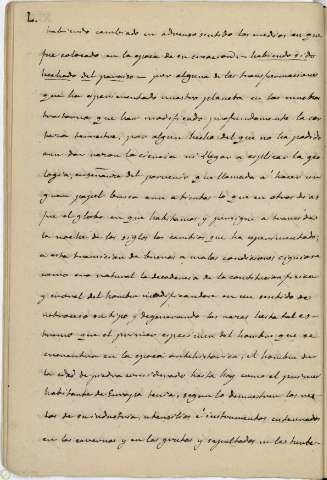 L.
habiendo cambiado en adverso sentido los medios en que
fue colocado en la época de su creacion habiendo sido
hechado del paraiso por alguna de las transformaciones
que ha esperimentado nuestro planeta en los muchos
trastornos que han modificado profundamente la cor
teza terrestre, por algun hecho del que no ha podido
aun dar razon la ciencia ni llegar a esplicar la geo
logia, enseñanza del porvenir que llamada á hacer un
gran papel busca aun a tientas lo que en otros dias
fue el globo en que habitamos y persigue a traves de
la noche de los siglos los cambios que ha esperimentado;
a esta transicion de buenas a malas condiciones siguiose
como era natural la decadencia de la constitucion fisica
y moral del hombre modificandose en un sentido
su tipo y degenerando las razas hasta tal es
tremo que el primer especimen del hombre que se
encuentra en la época antehistorica, el hombre de
la edad de piedra considerado hasta hoy como el primer
habitante de Europa tenia, segun lo demuestran los res
tos de su industria, utensilios é instrumentos enterrados
en las cavernas y en las grutas y sepultados en las turbe-